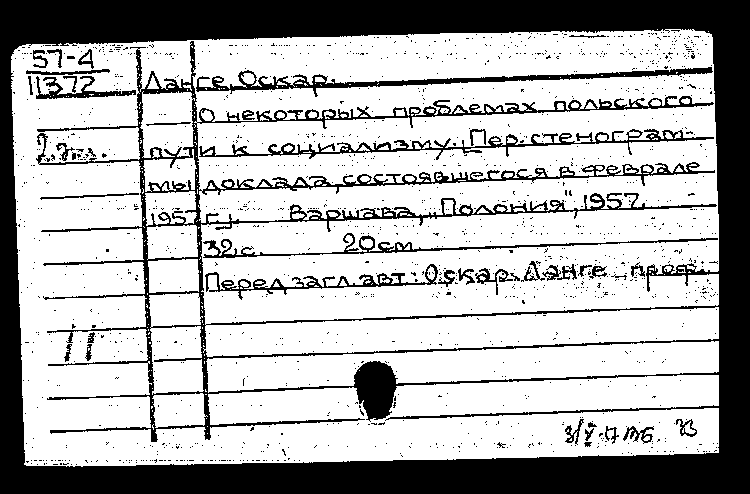 57-4
11372
Ланге, Оскар.
О некоторых проблемах польского
2 экз.
пути к социализму. [Пер. стенограм-
мы доклада, состоявшегося в феврале
1957 г.]. Варшава, „Полония", 1957.
32 с. 20 см.
Перед загл. авт: Оскар Ланге проф.